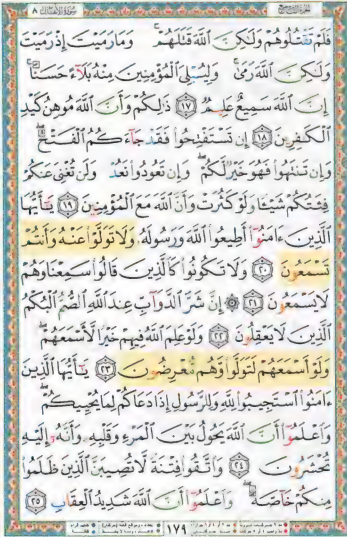 سورة الأنفال ٨
فَلَمْ تَقْتُلُوهُمْ وَلَـٰكِنَّ ٱللَّهَ قَتَلَهُمْ ۚ وَمَا رَمَيْتَ إِذْ رَمَيْتَ
وَلَـٰكِنَّ ٱللَّهَ رَمَىٰ ۚ وَلِيُبْلِيَ ٱلْمُؤْمِنِينَ مِنْهُ بَلَآءً حَسَنًا ۚ
إِنَّ ٱللَّهَ سَمِيعٌ عَلِيمٌ ١٧ ذَٰلِكُمْ وَأَنَّ ٱللَّهَ مُوهِنُ كَيْدِ
ٱلْكَـٰفِرِينَ ١٨ إِن تَسْتَفْتِحُوا۟ فَقَدْ جَآءَكُمُ ٱلْفَتْحُ ۖ
وَإِن تَنتَهُوا۟ فَهُوَ خَيْرٌ لَّكُمْ ۖ وَإِن تَعُودُوا۟ نَعُدْ وَلَن تُغْنِىَ عَنكُمْ
فِئَتُكُمْ شَيْـًٔا وَلَوْ كَثُرَتْ وَأَنَّ ٱللَّهَ مَعَ ٱلْمُؤْمِنِينَ ١٩ يَـٰٓأَيُّهَا
ٱلَّذِينَ ءَامَنُوٓا۟ أَطِيعُوا۟ ٱللَّهَ وَرَسُولَهُۥ وَلَا تَوَلَّوْا۟ عَنْهُ وَأَنتُمْ
تَسْمَعُونَ ٢٠ وَلَا تَكُونُوا۟ كَٱلَّذِينَ قَالُوا۟ سَمِعْنَا وَهُمْ
لَا يَسْمَعُونَ ٢١ ۞ إِنَّ شَرَّ ٱلدَّوَآبِّ عِندَ ٱللَّهِ ٱلصُّمُّ ٱلْبُكْمُ
ٱلَّذِينَ لَا يَعْقِلُونَ ٢٢ وَلَوْ عَلِمَ ٱللَّهُ فِيهِمْ خَيْرًا لَّأَسْمَعَهُمْ ۖ
وَلَوْ أَسْمَعَهُمْ لَتَوَلَّوا۟ وَّهُم مُّعْرِضُونَ ٢٣ يَـٰٓأَيُّهَا ٱلَّذِينَ
ءَامَنُوا۟ ٱسْتَجِيبُوا۟ لِلَّهِ وَلِلرَّسُولِ إِذَا دَعَاكُمْ لِمَا يُحْيِيكُمْ ۖ
وَٱعْلَمُوٓا۟ أَنَّ ٱللَّهَ يَحُولُ بَيْنَ ٱلْمَرْءِ وَقَلْبِهِۦ وَأَنَّهُۥٓ إِلَيْهِ
تُحْشَرُونَ ٢٤ وَٱتَّقُوا۟ فِتْنَةً لَّا تُصِيبَنَّ ٱلَّذِينَ ظَلَمُوا۟
مِنكُمْ خَآصَّةً ۖ وَٱعْلَمُوٓا۟ أَنَّ ٱللَّهَ شَدِيدُ ٱلْعِقَابِ ٢٥
١٧٩